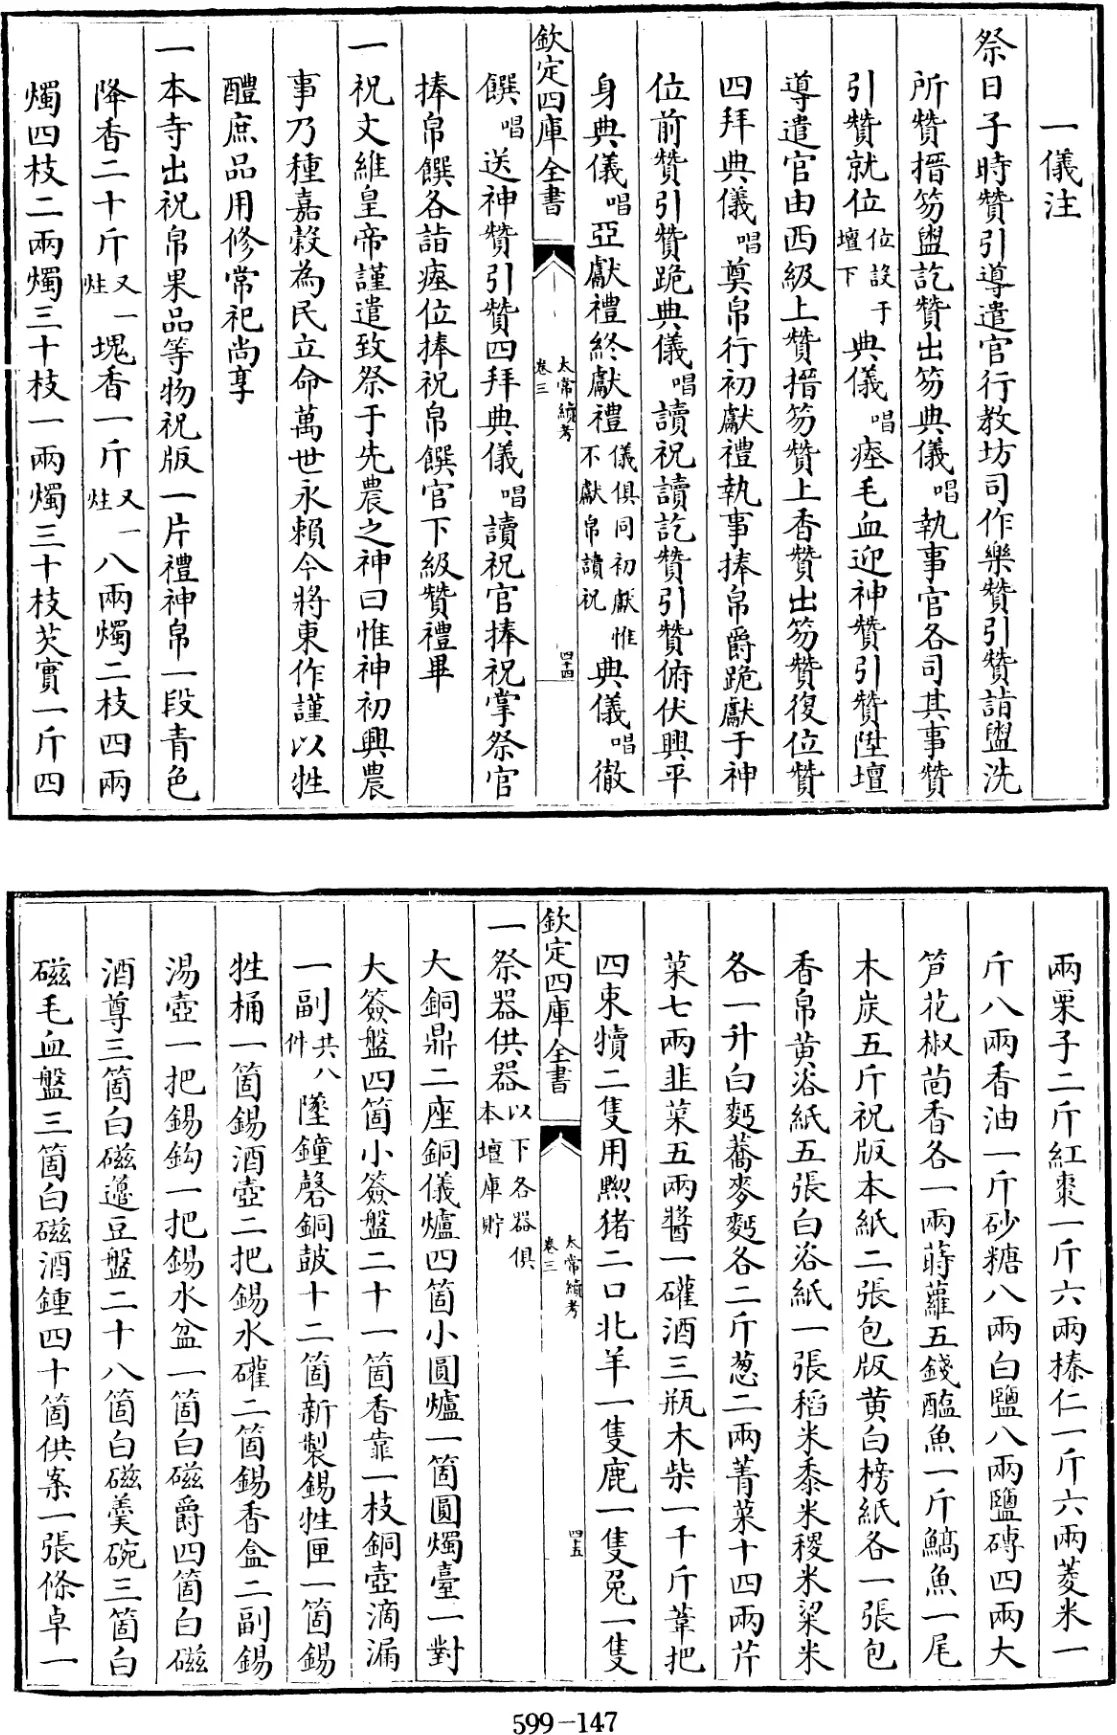 一儀注
祭日子時贊引導遣官行教坊司作樂贊引贊詣盥洗
所贊搢笏盥訖贊出笏典儀唱執事官各司其事贊
引贊就位位設于壇下典儀唱瘞毛血迎神贊引贊陞壇
導遣官由西級上贊搢笏贊上香贊出笏贊復位贊
四拜典儀唱奠帛行初獻禮執事捧帛爵跪獻于神
位前贊引贊跪典儀唱讀祝讀訖贊引贊俯伏興平
身典儀唱亞獻禮終獻禮儀俱同初獻惟不獻帛讀祝典儀唱徹
欽定四庫全書
太常續考
卷三
四十四
饌唱送神贊引贊四拜典儀唱讀祝官捧祝掌祭官
捧帛饌各詣瘞位捧祝帛饌官下級贊禮畢
一祝文維皇帝謹遣致祭于先農之神曰惟神初興農
事乃種嘉穀為民立命萬世永賴今將東作謹以牲
醴庶品用修常祀尚享
一本寺出祝帛果品等物祝版一片禮神帛一段青色
降香二十斤又一炷塊香一斤又一炷八兩燭二枝四兩
燭四枝二兩燭三十枝一兩燭三十枝芡實一斤四
兩栗子二斤紅棗一斤六兩榛仁一斤六兩菱米一
斤八兩香油一斤砂糖八兩白鹽八兩鹽磚四兩大
笋花椒茴香各一兩蒔蘿五錢醢魚一斤鱐魚一尾
木炭五斤祝版本紙二張包版黄白榜紙各一張包
香帛黄咨紙五張白咨紙一張稻米黍米稷米粱米
各一升白麪蕎麥麪各二斤葱二兩菁菜十四兩芹
菜七兩韭菜五兩醬一礶酒三瓶木柴一千斤葦把
四束犢二隻用黝猪二口北羊一隻鹿一隻兎一隻
欽定四庫全書
太常續考
卷三
四十五
一祭器供器以下各器俱本壇庫貯
大銅鼎二座銅儀爐四箇小圓爐一箇圓燭臺一對
大簽盤四箇小簽盤二十一箇香靠一枝銅壺滴漏
一副共八件墜鐘磬銅鼓十二箇新製錫牲匣一箇錫
牲桶一箇錫酒壺二把錫水礶二箇錫香盒二副錫
湯壺一把錫鈎一把錫水盆一箇白磁爵四箇白磁
酒尊三箇白磁籩豆盤二十八箇白磁羹碗三箇白
磁毛血盤三箇白磁酒鍾四十箇供案一張條卓一
599-147